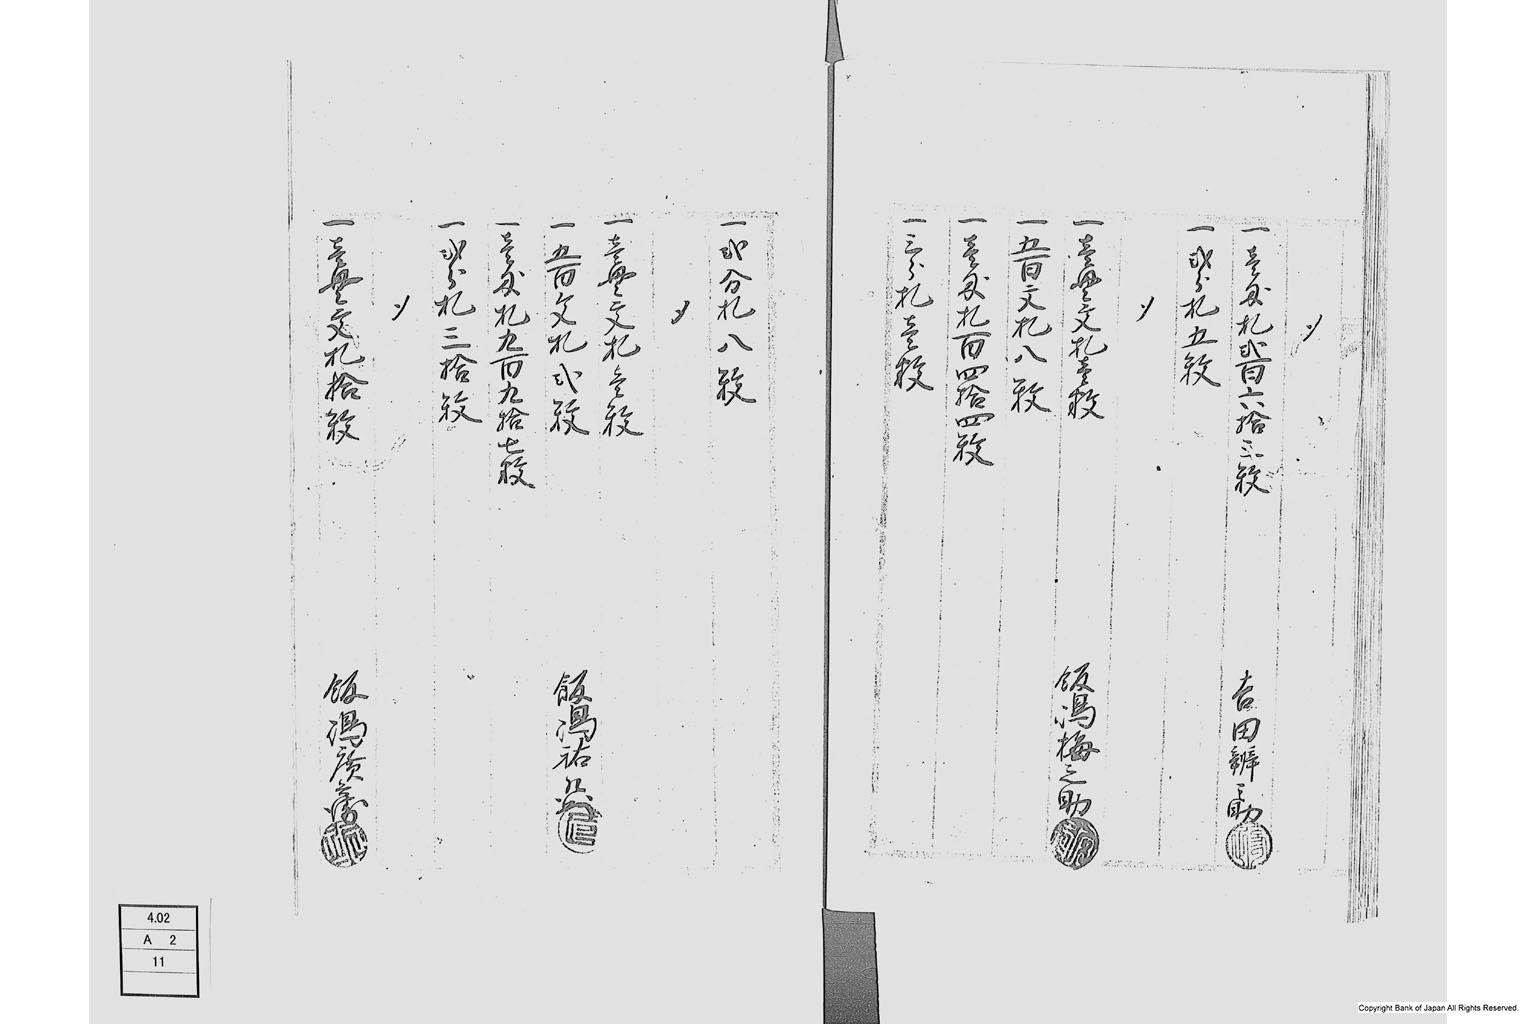 〆
一壱匁札弐百六拾三枚 吉田辨之助
一弐分札五枚
〆
一壱貫文札壱枚 飯嶋梅之助
一五百文札八枚
一壱匁札百四拾四枚
一三分札壱枚
一弐分札八枚
〆
一壱貫文札壱枚
一五百文札弐枚 飯嶋祐
一壱匁札九百九拾七枚
一弐分札三拾枚
〆
一壱貫文札拾枚 飯嶋廣
4.02
A 2
11
Copyright Bank of Japan All Rights Reserved.